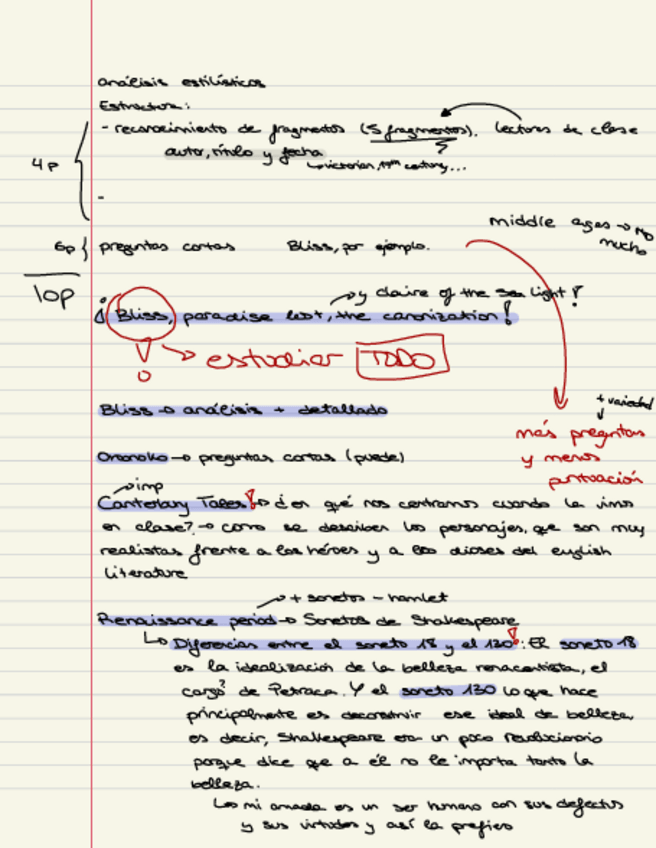 análisis estilísticos
Estructura:
- reconocimiento de fragmentos (5 fragmentos). lecturas de clase
autor, título y fecha
victorian, 19th century,...
4p
-
middle ages → no
mucho
6p } preguntas cortas Bliss, por ejemplo.
10p
y claire of the sea light!
¡Bliss, paradise lost, the canonization!
→ estudiar TODO
Bliss → análisis + detallado
+ variedad
más preguntas
y menos
puntuación
Oronoko → preguntas cortas (puede)
imp
Canterbury Tales! → ¿en qué nos centramos cuando la vimos
en clase? → como se describen los personajes, que son muy
realistas frente a los héroes y a los dioses del english
literature
+ sonetos - hamlet
Renaissance period → Sonetos de Shakespeare
Diferencias entre el soneto 18 y el 130!: El soneto 18
es la idealización de la belleza renacentista, el
de Petraca. Y el soneto 130 lo que hace
principalmente es deconstruir ese ideal de belleza,
es decir, Shakespeare era un poco revolucionario
porque dice que a él no le importa tanto la
belleza.
mi amada es un ser humano con sus defectos
y sus virtudes y así la prefiero